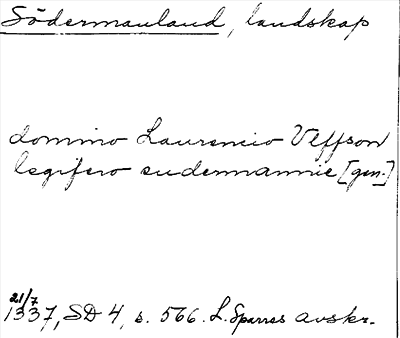 Södermanland, landskap
domino Laurencio Vlffson
legifero sudermannie [gen.]
21/7
1337, SD 4, s. 566. L. Sparres avskr.